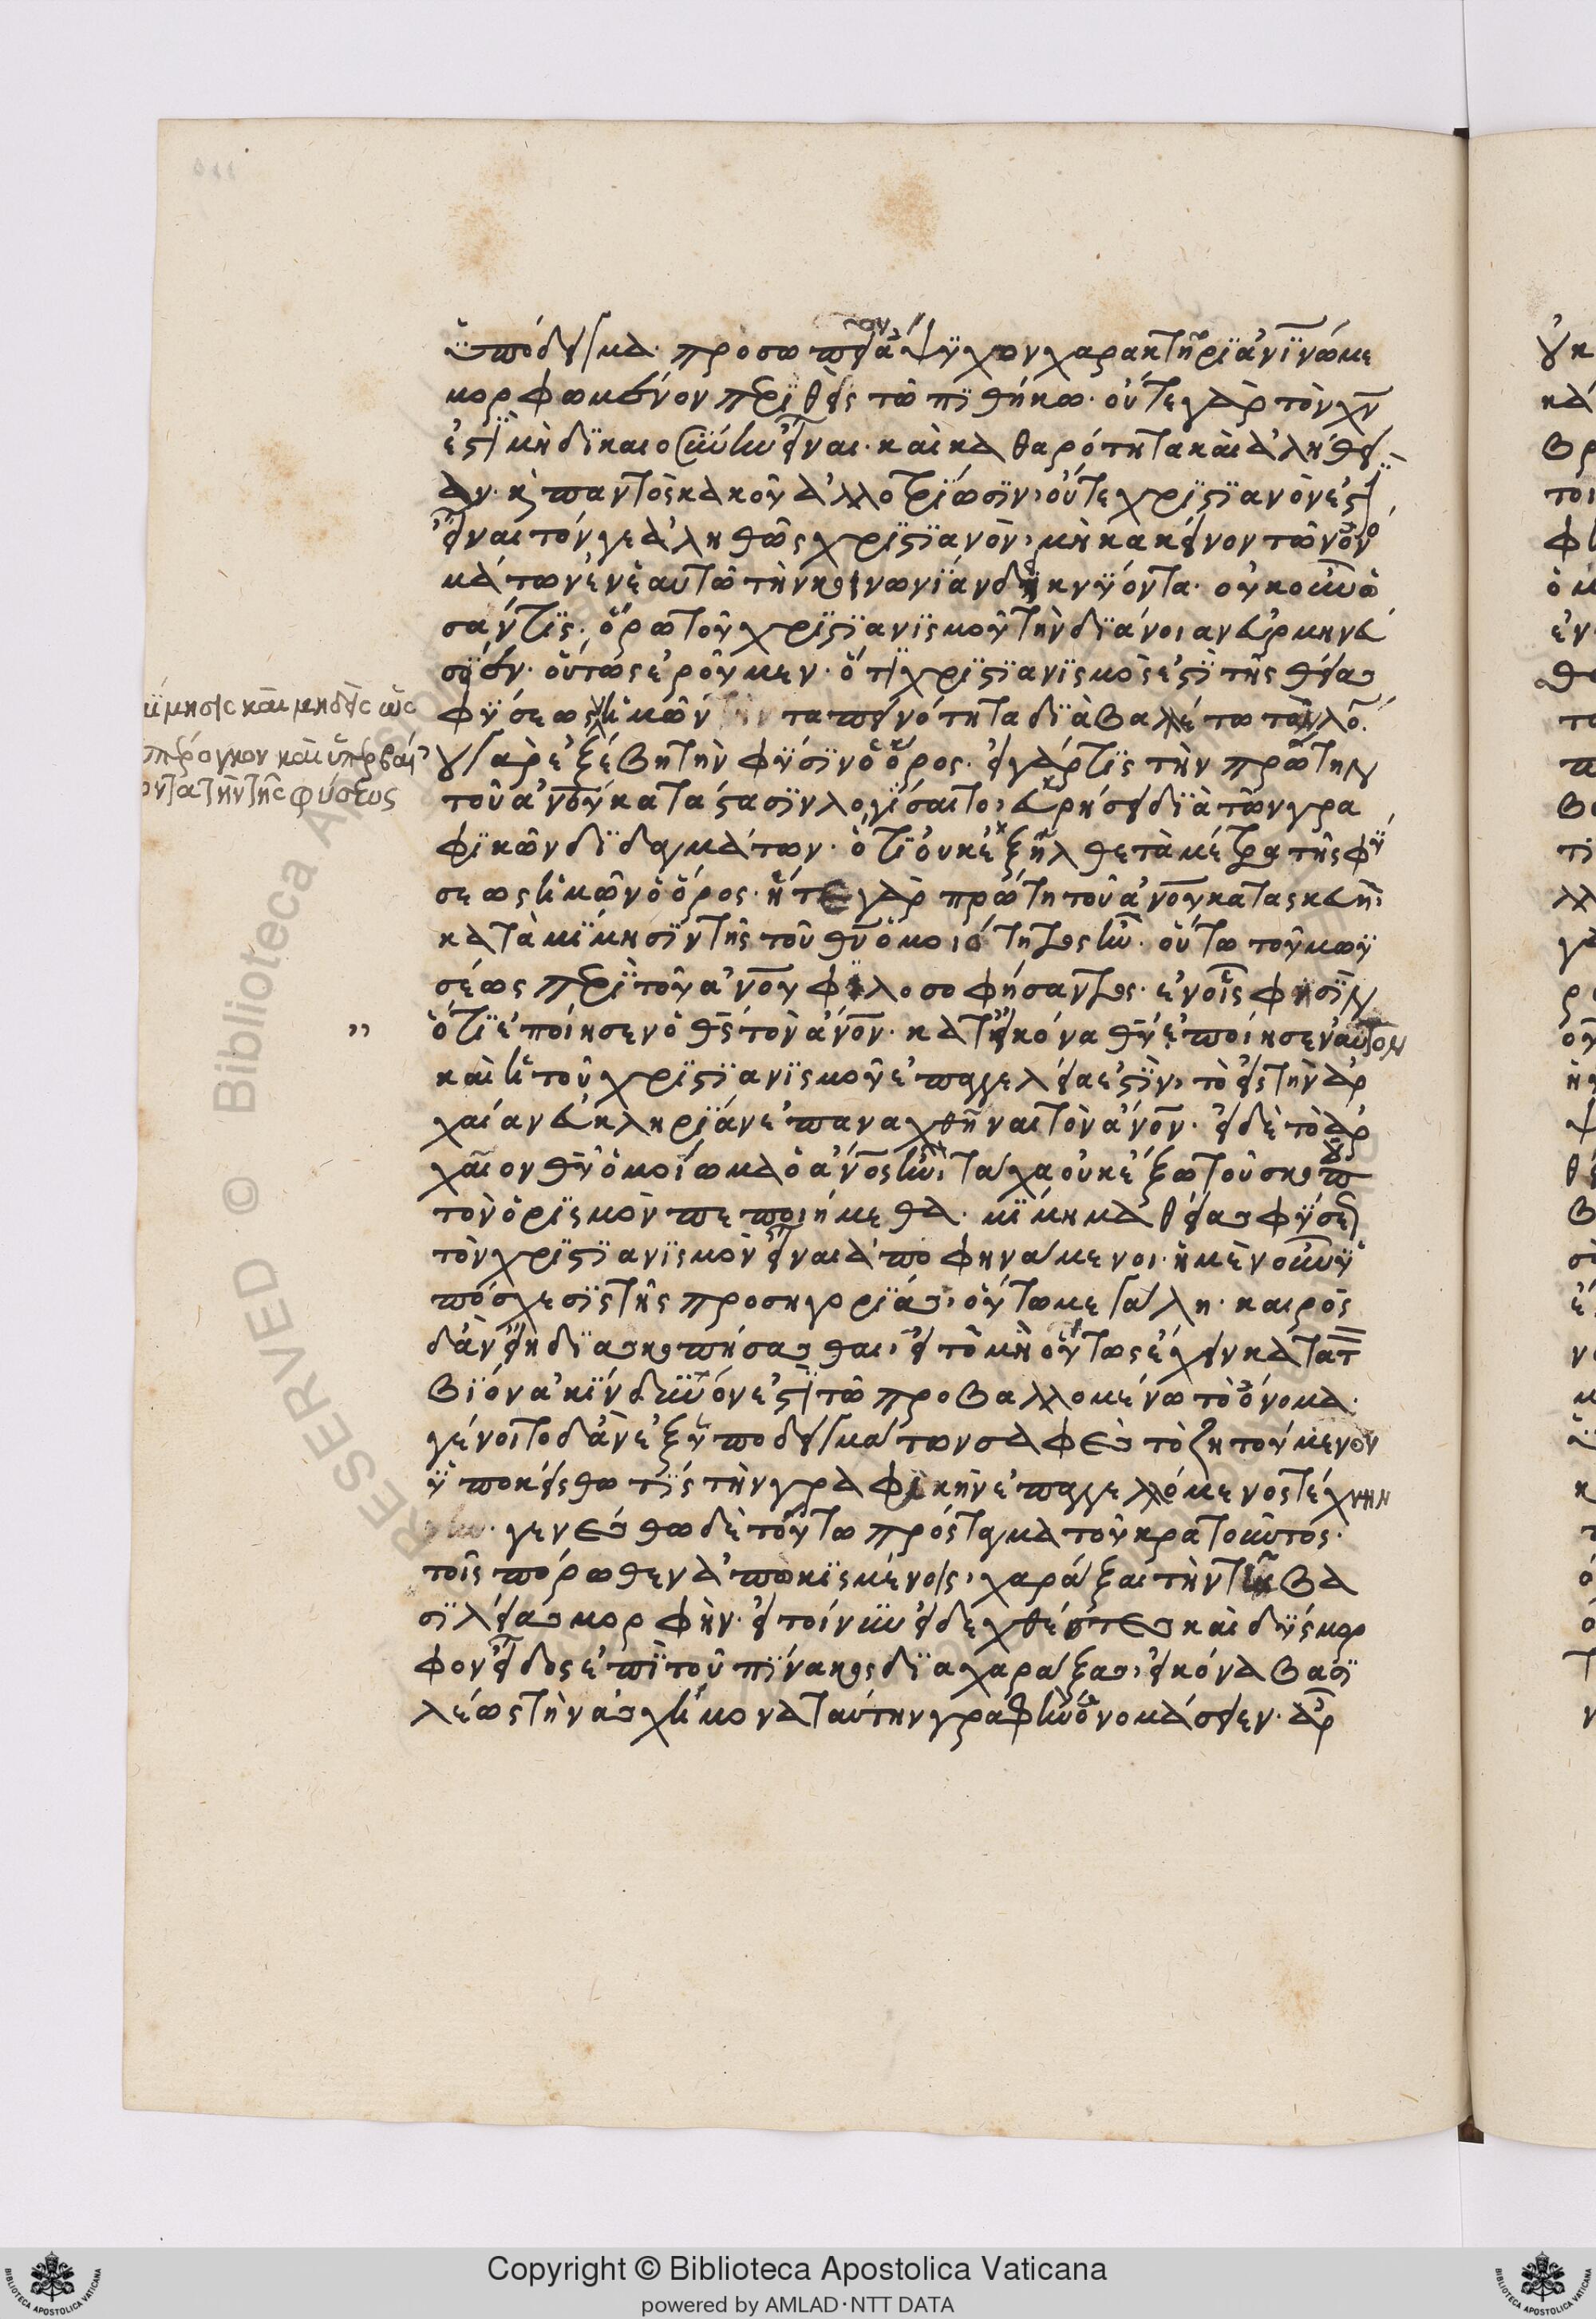 ὑπόδειγμα· προσωπεῖον ἄψυχον χαρακτῆρι ἀνίνω με
μορφωμένον περιθεὶς τῶ πιθήκω· οὔτε γὰρ τὸν χν
ἐστι μὴ δικαιοσύνην εἶναι· καὶ καθαρότητα καὶ ἀλήθει
αν· κ παντὸς κακοῦ ἀλλοτρίωσιν, οὔτε χριστιανὸν ἐστι
εἶναι τόν γε ἀληθῶς χριστιανὸν, μὴ κακεῖνον τῶν ὀνο
μάτων ἐν ἑαυτῶ τὴν κοινωνίαν δεικνύοντα· οὐκοῦν ὁ
σάντις· ὅρω τοῦ χριστιανισμοῦ τὴν διάνοιαν ἑρμηνεύ
σειεν· οὕτως ἐροῦμεν· ὅτι χριστιανισμὸς ἐστὶ τῆς θείας
φύσεως ἡμῶν ταπεινότητα διαβαλέτω τὸν λό
γὰρ ἐξέβη τὴν φύσιν ὁ ὅρος· εἰ γάρ τις τὴν πρώτην
τοῦ ἀνου κατάστασιν λογίσαιτο, εὑρήσει διὰ τῶν γρα
φικῶν διδαγμάτων· ὅτι οὐκ ἐξῆλθε τὰ μέτρα τῆς φύ
σεως ἡμῶν ὁ ὅρος· ἥ τε γὰρ πρώτη τοῦ ἀνου κατασκευὴ,
κατὰ μίμησιν τῆς τοῦ θυ ὁμοιότητος ἦν· οὕτω τοῦ μωϋ
σέως περὶ τοῦ ἀνου φιλοσοφήσαντος· ἐν οἷς φησὶν
ὅτι ἐποίησεν ὁ θς τὸν ἀνον· κατ' εἰκόνα θυ ἐποίησεν αὐτὸν
καὶ ἡ τοῦ χριστιανισμοῦ ἐπαγγελεία ἐστὶν, τὸ εἰς τὴν ἀρ
χαίαν εὐκληρίαν ἐπαναχθῆναι τὸν ἀνον· εἰ δὲ τὸ ἀρ
χαῖον θυ ὁμοίωμα ὁ ἀνος ἦν, τάχα οὐκ ἔξω τοῦ σκοποῦ
τὸν ὁρισμὸν πεποιήμεθα· μίμημα θείας φύσεως
τὸν χριστιανισμὸν εἶναι ἀποφηνάμενοι· ἡ μὲν οὖν ὑ
πόσχεσις τῆς προσηγορίας, οὕτω μεγάλη· καιρὸς
δ' ἂν εἴη διασκοπήσασθαι, εἰ τὸ μὴ οὕτως ἔχειν κατὰ τ
βίον ἀκίνδυνόν ἐστι τῶ προβαλλομένω τὸ ὄνομα·
γένοιτο δ' ἂν ἐξ ὑποδειγμάτων σαφὲς τὸ ζητούμενον
ὑποκείσθω τίς τὴν γραφικὴν ἐπαγγελλόμενος τέχνην
γενέσθω δὲ τούτω πρόσταγμα τοῦ κρατοῦντος·
τοῖς πόρωθεν ἀπωκισμένοις, χαράξαι τὴν τῆς βα
σιλείας μορφὴν· εἰ τοίνυν εἰδεχθές τε καὶ δύσμορ
φον εἶδος ἐπὶ τοῦ πίνακος διαχαράξας, εἰκόνα βασι
λέως τὴν ἀσχήμονα ταύτην γραφὴν ὀνομάσειεν· ἀρ
μίμησις καὶ μηδεὶς ὡς
ὑπέρογκον καὶ ὑπερβαί
οντα τὴν τῆς φύσεως